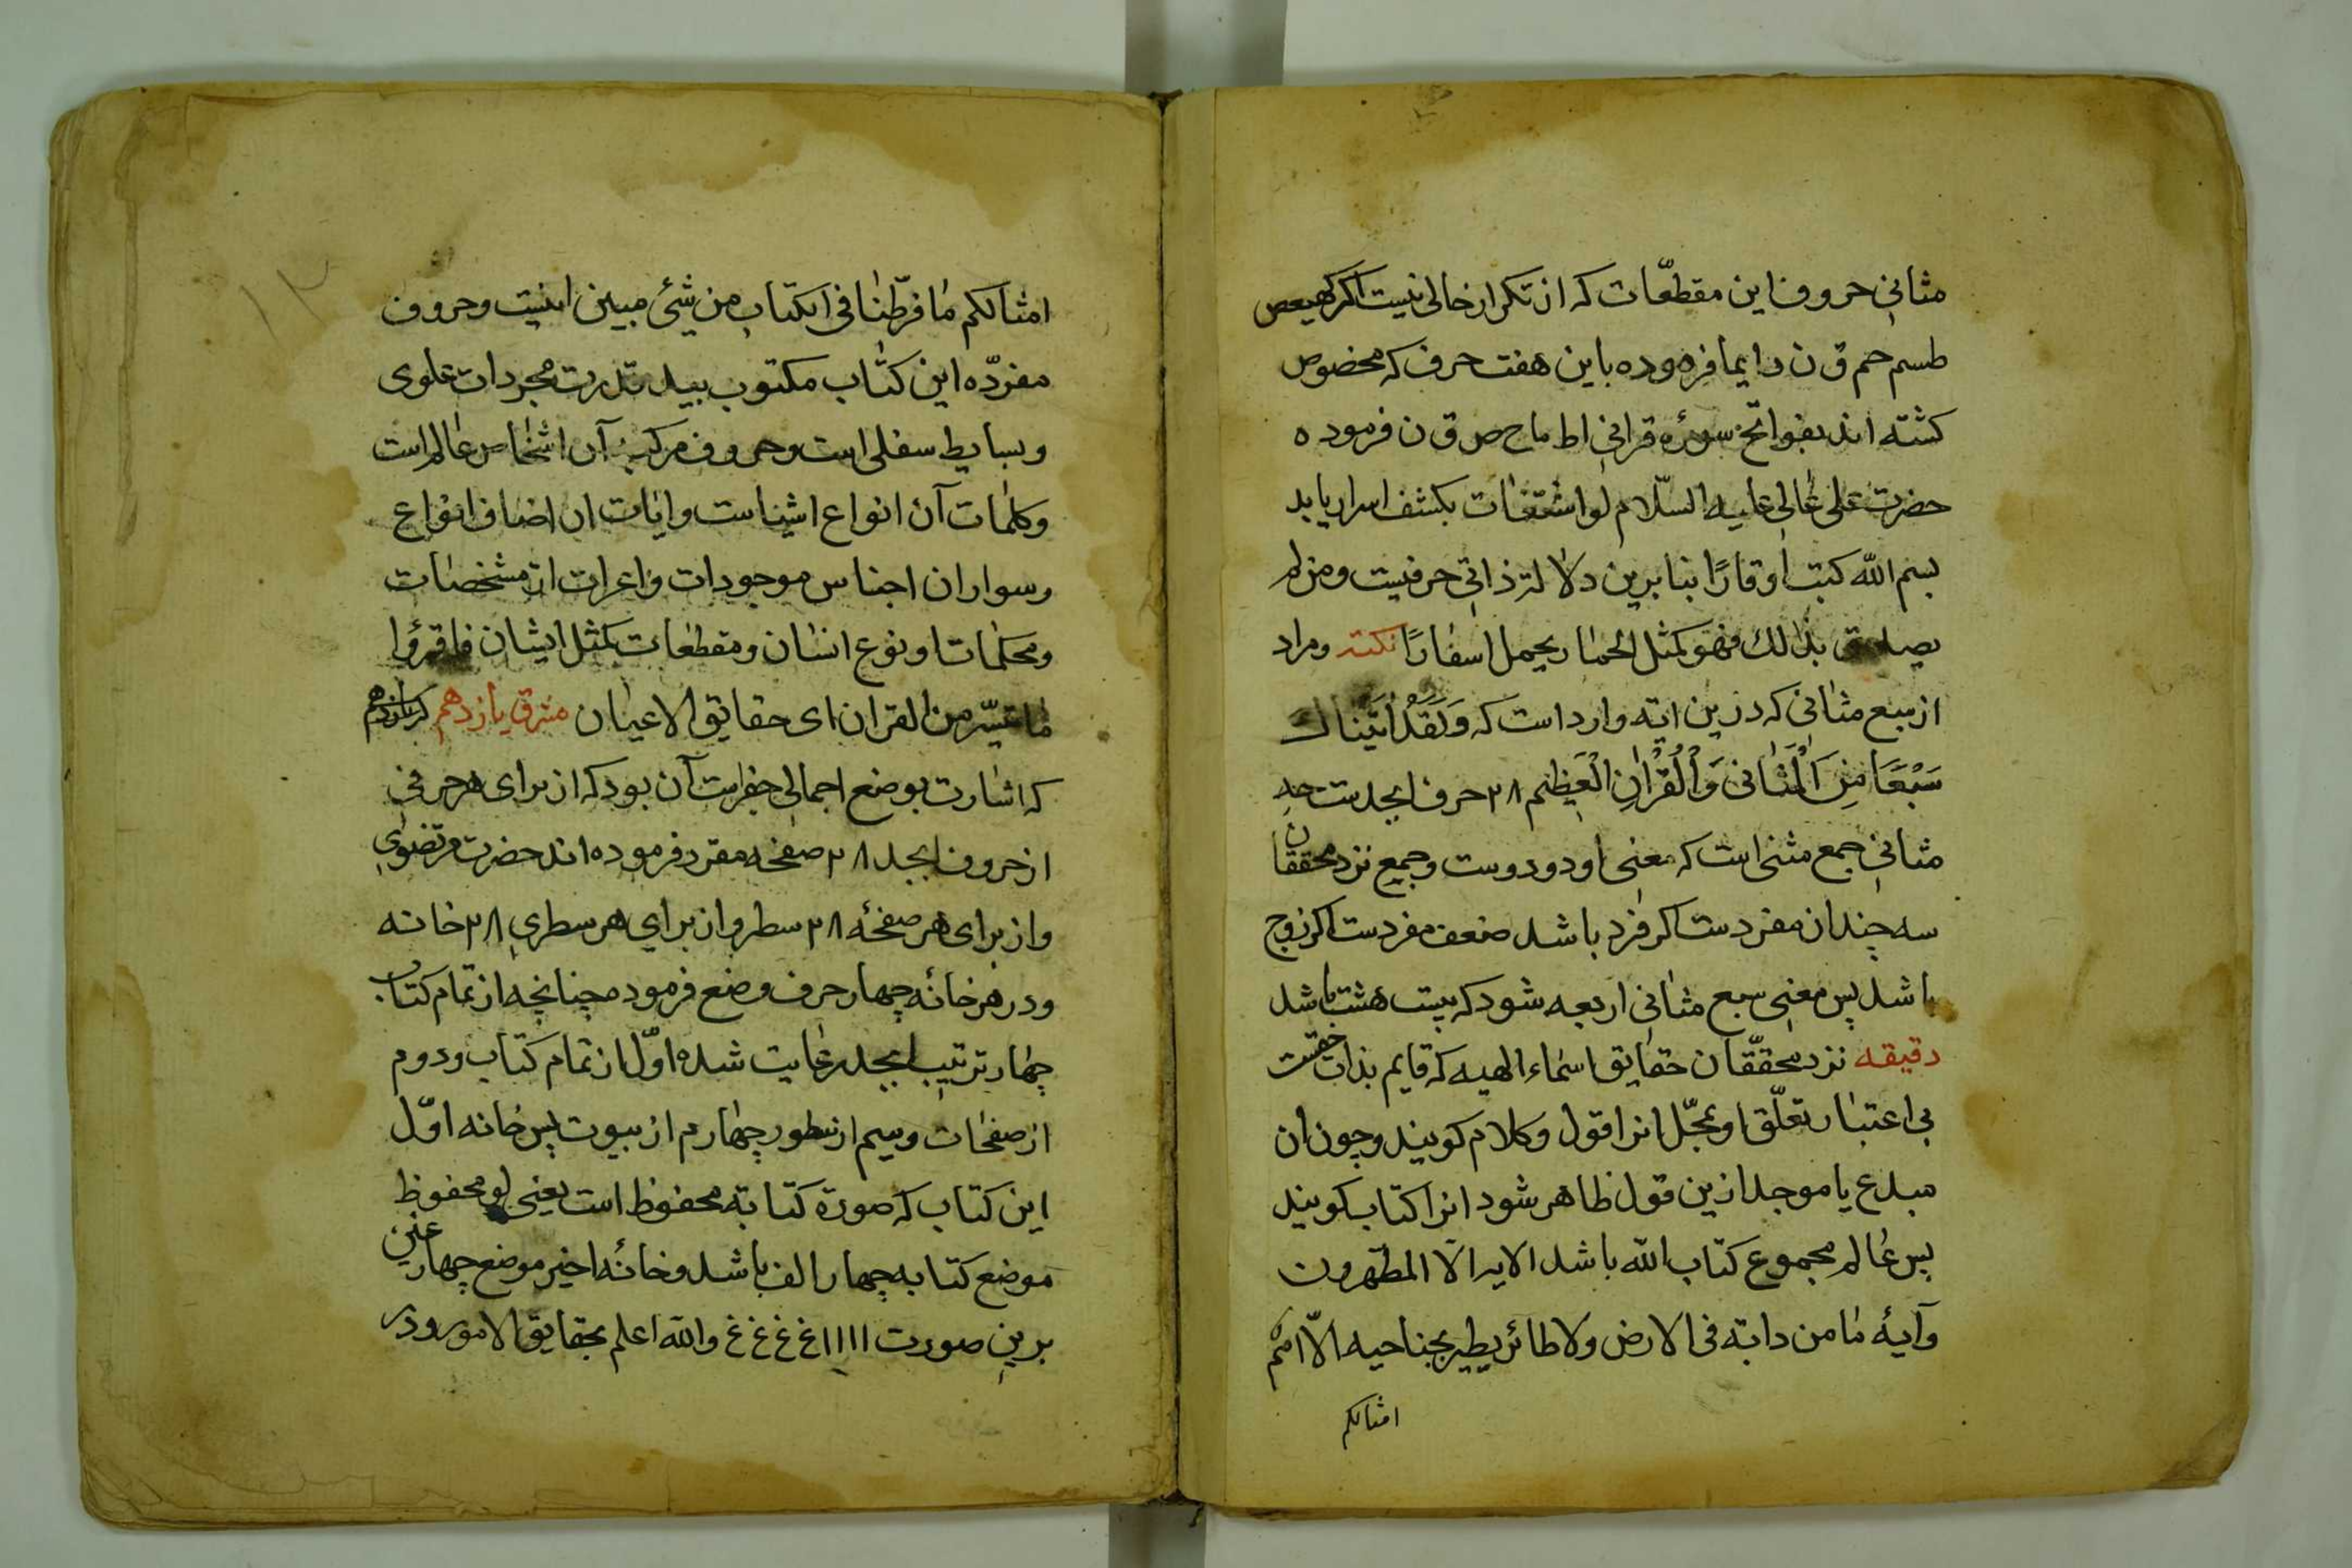 مثانی حروف این مقطعّات که از تکرار خالی نیست اکر کهیعص
طسم حم ق ن دایما فرموده باین هفت حرف که مخصوص
کشته اند بفواتح سورۀ قرانی ا ط م ا ح ص ق ن فرموده
حضرت علی عٰالی علیه السّلام لو اشتغات بکشف اسرار یابد
بسم الله کبت اوقارًا بنا برین دلالة ذاتی حرفیست ومن لم
یصدق بذٰلک فهو کمثل الحمٰار یحمل اسفارًا نکته ومراد
از سبع مثانی که درین ایه وارد است که وَلَقَدْ اٰتَیْناكَ
سَبْعًا مِنَ الْمَثٰانی وَالْقُرْاٰنِ الْعَظیم ۲۸ حرف ابجدست چه
مثانی جمع مثنی است که معنی او دو دوست وجمع نزد محققان
سه چندان مفردست اکر فرد باشد ضعف مفردست اکر زوج
باشد پس معنی سبع مثانی اربعه شود که بیست هشت باشد
دقیقه نزد محققّان حقایق اسمٰاء الهیه که قایم بذات حقست
بی اعتبار تعلّق او بمجّل انرا قول وکلام کویند وچون ان
مبدع یا موجد ازین قول ظاهر شود انرا کتاب کویند
پس عٰالم مجموع کتاب الله باشد الایر الّا المطهرون
وآیۀ مٰا من دابة فی الارض ولا طائر یطیر بجناحیه الّا امم
امثالکم
امثالکم مٰا فرّطنٰا فی الکتاب من شیٔ مبین اینست وحروف
مفردّه این کتٰاب مکتوب بید قدرت مجردات علوی
وبسایط سفلی است وحروف مرکبۀ آن اشخٰاص عٰالم است
وکلمٰات آن انواع اشیاست وایٰات ان اضاف انواع
وسوار ان اجناس موجودات واعراب ان مشخصٰات
ومحکمٰات او نوع انسٰان ومقطعٰات کمثل ایشان فاقرؤا
مٰا تیسّر من القران ای حقایق الاعیان مشرق یازدهم کرسانزدهم
که اشارت بوضع اجمالی جفرست آن بود که از برای هر حرفی
از حروف ابجد ۲۸ صفحٰه مقرر فرموده اند حضرت مرتضوی
واز برای هر صفحٔه ۲۸ سطر واز برای هر سطری ۲۸ خانه
ودر هر خانٔه چهار حرف وضع فرمود چنانچه از تمام کتاب
چهار ترتیب ابجد رعٰایت شده اوّل از تمام کتاب ودوم
از صفحٰات وسیم از سطور چهارم از بیوت پس خانه اوّل
این کتاب که صورة کتابة محفوظ است یعنی لو محفوظ
موضع کتابه چهار الف باشد وخانٔه اخیر موضع چهار غین
برین صورت ا ا ا ا غ غ غ غ والله اعلم بحقایق الامور ودر
۱۲